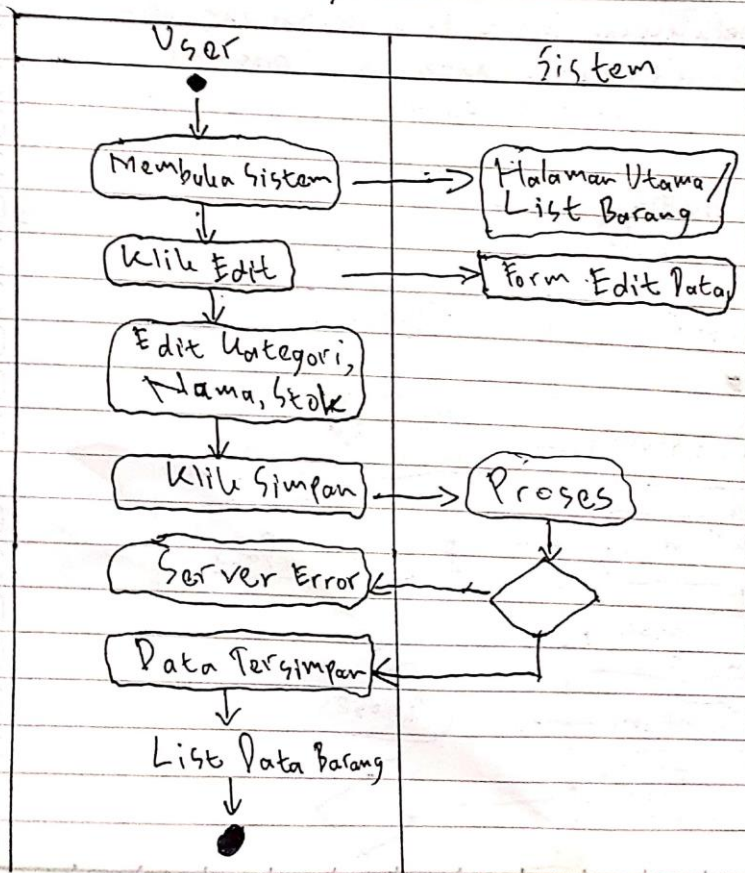 User
Sistem
Membuka Sistem
Halaman Utama/
List Barang
Klik Edit
Form Edit Data
Edit Kategori,
Nama, Stok
Klik Simpan
Proses
Server Error
Data Tersimpan
List Data Barang